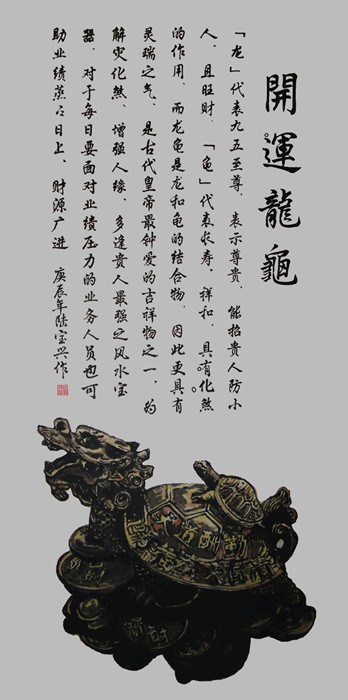 開運龍龜
「龙」代表九五至尊、表示尊贵、能招贵人防小
人、且旺财、「龟」代表长寿。祥和、具有化煞
的作用、而龙龟是龙和龟的结合物、因此更具有。
灵瑞之气、是古代皇帝最钟爱的吉祥物之一、为
解灾化煞、增强人缘、多逢贵人最强之风水宝
器、对于每日要面对业绩压力的业务人员也可
助业绩蒸々日上、财源广进 庚辰年陆宝兴作
道酬勤
財
財